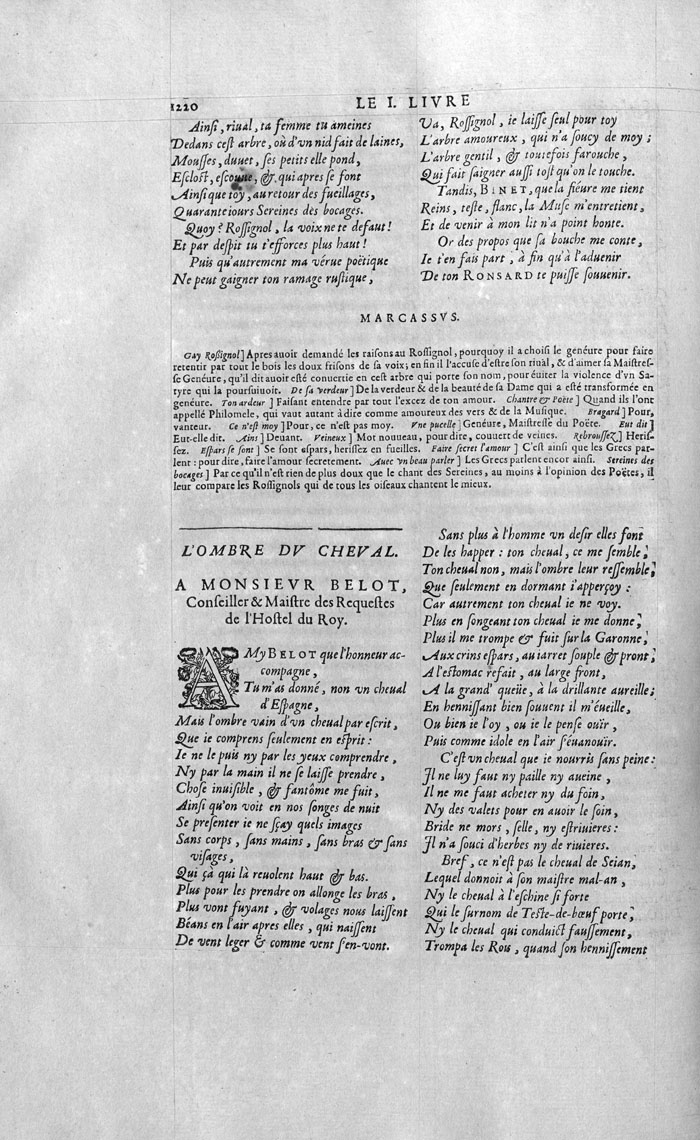 1220
LE I. LIVRE
Ainsi, riual, ta femme tu ameines
Dedans cest arbre, où d'vn nid fait de laines,
Mousses, duuet, ses petits elle pond,
Esclost, escouue, & qui apres se font
Ainsi que toy, au retour des fueillages,
Quarante iours Sereines des bocages.
Quoy? Rossignol, la voix ne te defaut!
Et par despit tu t'efforces plus haut!
Puis qu'autrement ma vérue poëtique
Ne peut gaigner ton ramage rustique,
Va, Rossignol, ie laisse seul pour toy
L'arbre amoureux, qui n'a soucy de moy;
L'arbre gentil, & toutefois farouche,
Qui fait saigner aussi tost qu'on le touche.
Tandis, BINET, que la fiéure me tient
Reins, teste, flanc, la Muse m'entretient,
Et de venir à mon lit n'a point honte.
Or des propos que sa bouche me conte,
Ie t'en fais part, à fin qu'à l'aduenir
De ton RONSARD te puisse souuenir.
MARCASSVS.
Gay Rossignol] Apres auoir demandé les raisons au Rossignol, pourquoy il a choisi le genéure pour faire
retentir par tout le bois les doux frisons de sa voix; en fin il l'accuse d'estre son riual, & d'aimer sa Maistres-
se Genéure, qu'il dit auoir esté conuertie en cest arbre qui porte son nom, pour éuiter la violence d'vn Sa-
tyre qui la poursuiuoit. De sa verdeur] De la verdeur & de la beauté de sa Dame qui a esté transformée en
genéure. Ton ardeur] Faisant entendre par tout l'excez de ton amour. Chantre & Poëte] Quand ils l'ont
appellé Philomele, qui vaut autant à dire comme amoureux des vers & de la Musique. Bragard] Pour,
vanteur. Ce n'est moy] Pour, ce n'est pas moy. Vne pucelle] Genéure, Maistresse du Poëte. Eut dit]
Eut-elle dit. Ains] Deuant. Veineux] Mot nouueau, pour dire, couuert de veines. Rebroussez] Heris-
sez. Espars se sont] Se sont espars, herissez en fueilles. Faire secret l'amour] C'est ainsi que les Grecs par-
lent: pour dire, faire l'amour secretement. Auec vn beau parler] Les Grecs parlent encor ainsi. Sereines des
bocages] Par ce qu'il n'est rien de plus doux que le chant des Sereines, au moins à l'opinion des Poëtes, il
leur compare les Rossignols qui de tous les oiseaux chantent le mieux.
L'OMBRE DV CHEVAL.
A MONSIEVR BELOT,
Conseiller & Maistre des Requestes
de l'Hostel du Roy.
AMy BELOT que l'honneur ac-
compagne,
Tu m'as donné, non vn cheual
d'Espagne,
Mais l'ombre vain d'vn cheual par escrit,
Que ie comprens seulement en esprit:
Ie ne le puis ny par les yeux comprendre,
Ny par la main il ne se laisse prendre,
Chose inuisible, & fantôme me fuit,
Ainsi qu'on voit en nos songes de nuit
Se presenter ie ne sçay quels images
Sans corps, sans mains, sans bras & sans
visages,
Qui çà qui là reuolent haut & bas.
Plus pour les prendre on allonge les bras,
Plus vont fuyant, & volages nous laissent
Béans en l'air apres elles, qui naissent
De vent leger & comme vent s'en-vont.
Sans plus à l'homme vn desir elles font
De les happer: ton cheual, ce me semble,
Ton cheual non, mais l'ombre leur ressemble,
Que seulement en dormant i'apperçoy:
Car autrement ton cheual ie ne voy.
Plus en songeant ton cheual ie me donne,
Plus il me trompe & fuit sur la Garonne,
Aux crins espars, au iarret souple & pront,
A l'estomac refait, au large front,
A la grand' queüe, à la drillante aureille;
En hennissant bien souuent il m'éueille,
Ou bien ie l'oy, ou ie le pense ouïr,
Puis comme idole en l'air s'éuanouïr.
C'est vn cheual que ie nourris sans peine:
Il ne luy faut ny paille ny aueine,
Il ne me faut acheter ny du foin,
Ny des valets pour en auoir le soin,
Bride ne mors, selle, ny estriuieres:
Il n'a souci d'herbes ny de riuieres.
Bref, ce n'est pas le cheual de Seian,
Lequel donnoit à son maistre mal-an,
Ny le cheual à l'eschine si forte
Qui le surnom de Teste-de-bœuf porte,
Ny le cheual qui conduict faussement,
Trompa les Rois, quand son hennissement